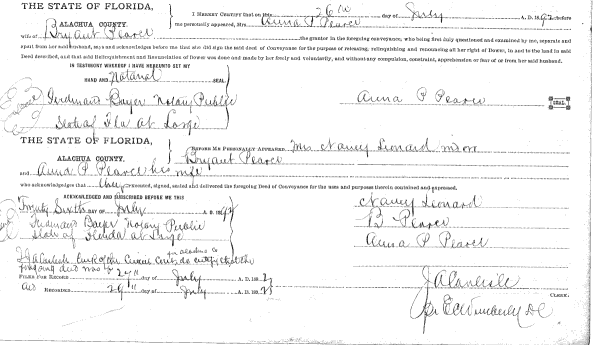 THE STATE OF FLORIDA,
ALACHUA COUNTY.
I HEREBY CERTIFY that on this 26th day of July A. D. 1892 before
me personally appeared, Mrs. Anna P Pearce
wife of Bryant Pearce the grantor in the foregoing conveyance, who being first duly questioned and examined by me, separate and
apart from her said husband, says and acknowledges before me that she did sign the said deed of Conveyance for the purpose of releasing, relinquishing and renouncing all her right of Dower, in and to the land in said
Deed described, and that said Relinquishment and Renunciation of Dower was done and made by her freely and voluntarily, and without any compulsion, constraint, apprehension or fear of or from her said husband.
IN TESTIMONY WHEREOF I HAVE HEREUNTO SET MY
HAND AND Notarial SEAL
Ferdinand Bayer Notary Public
State of Fla at Large
Anna P Pearce
SEAL
THE STATE OF FLORIDA,
ALACHUA COUNTY.
BEFORE ME PERSONALLY APPEARED Mrs Nancy Leonard
Bryant Pearce
and Anna P Pearce his wife
who acknowledges that they executed, signed, sealed and delivered the foregoing Deed of Conveyance for the uses and purposes therein contained and expressed.
ACKNOWLEDGED AND SUBSCRIBED BEFORE ME THIS
Twenty Sixth DAY OF July A. D. 1892
Ferdinand Bayer Notary Public
State of Florida at Large
Nancy Leonard
B Pearce
Anna P Pearce
J A Carlisle Clerk of the Circuit Court do certify that the
foregoing deed was
FILED FOR RECORD 27th day of July A. D. 1892
and RECORDED 29th day of July A. D. 1892
J A Carlisle
CLERK.
pr E C Wimberly DC